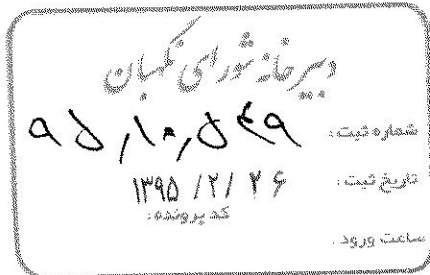 دبیرخانه شورای نگهبان
شماره ثبت: ۹۵/۱۰/۵۴۹
تاریخ ثبت: ۱۳۹۵/۲/۲۶
کد پرونده:
ساعت ورود: